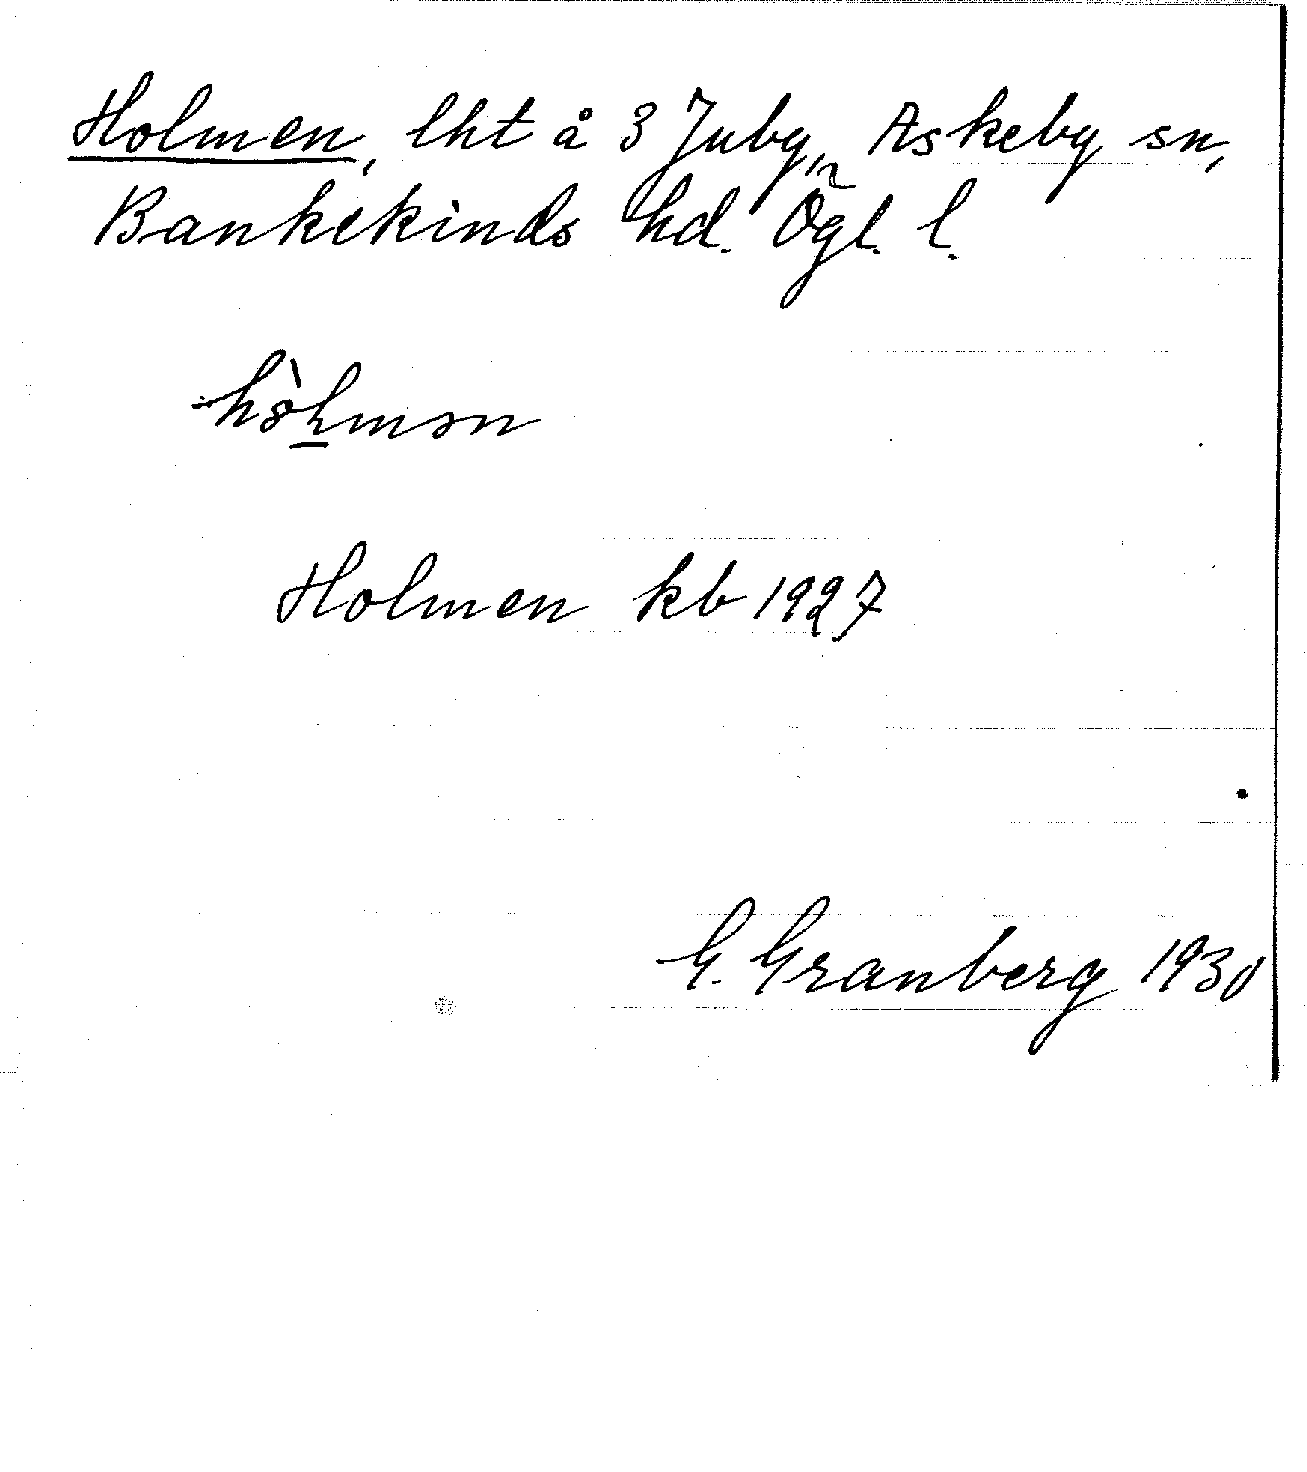 Holmen, lht å 3 Juby, Askeby sn,
Bankekinds hd. Ögl. l.
Holmen kb 1927
G. Granberg 1930